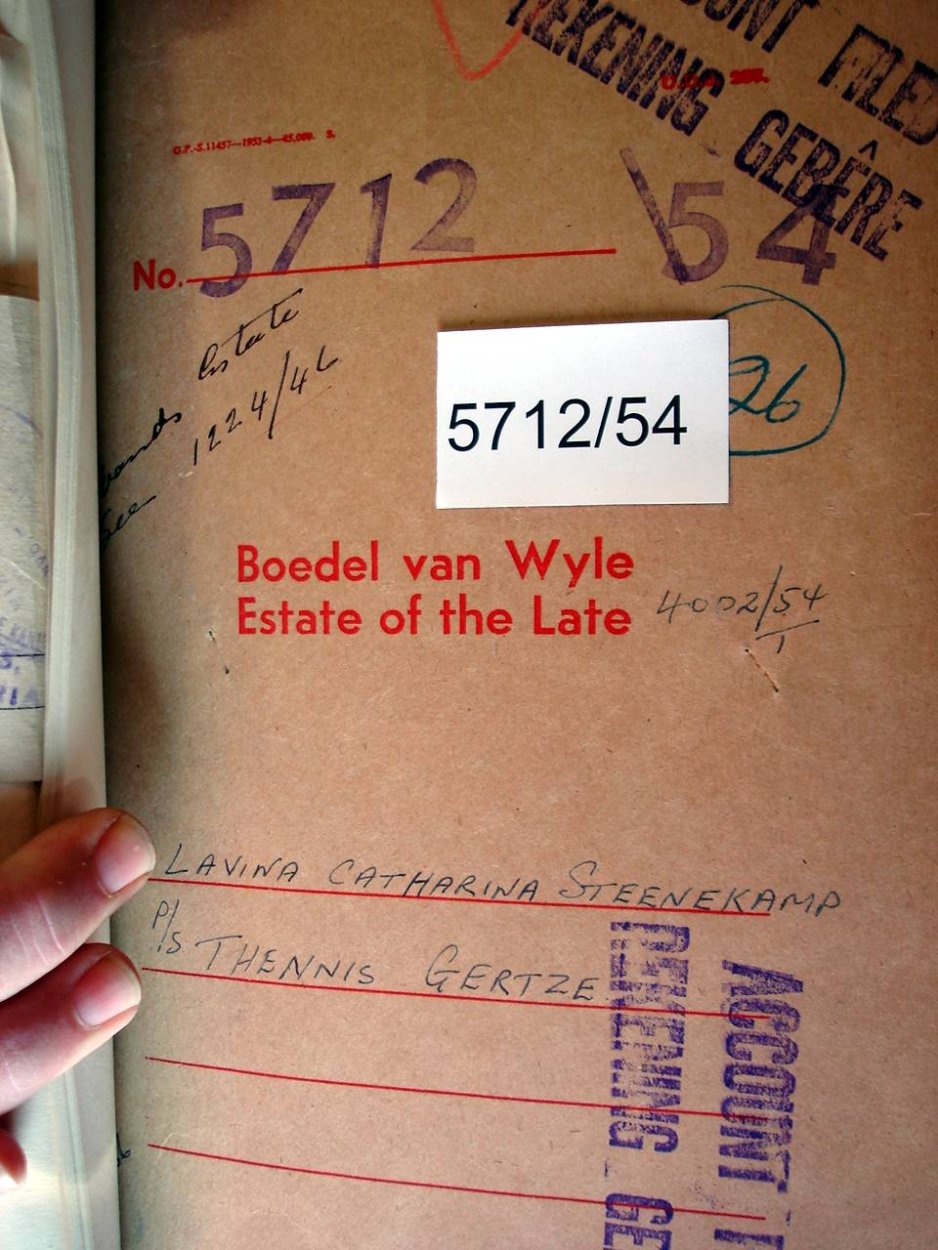 ACCOUNT FILED
REKENING GEBÊRE
G.P.-S.11457—1953-4—45,000. S.
No. 5712 \54
Estate
See 1224/46
26
5712/54
Boedel van Wyle
Estate of the Late
4002/54
1
LAVINA CATHARINA STEENEKAMP
P/S THENNIS GERTZE
ACCOUNT
REKENING GE